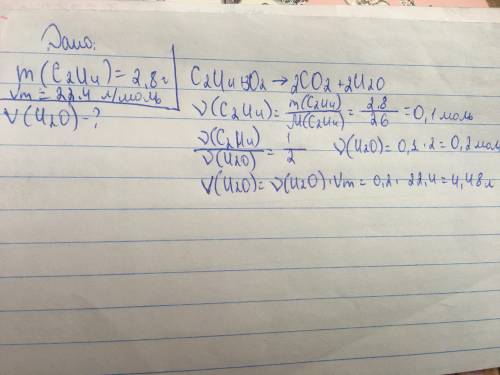 Дано:
m(C₂H₄) = 2,8 г
Vm = 22,4 л/моль
V(H₂O) - ?
C₂H₄ + 3O₂ → 2CO₂ + 2H₂O
ν(C₂H₄) = m(C₂H₄)/M(C₂H₄) = 2,8/26 = 0,1 моль
ν(C₂H₄)/ν(H₂O) = 1/2 ν(H₂O) = 0,1 · 2 = 0,2 моль
V(H₂O) = ν(H₂O) · Vm = 0,2 · 22,4 = 4,48 л